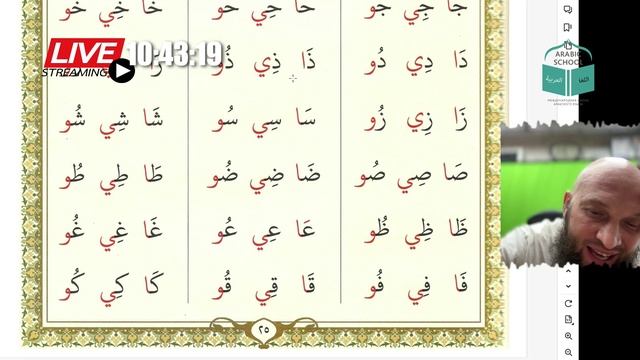 جَا جِي جُو حَا حِي حُو خَا خِي خُو
LIVE 10:43:19
STREAMING
دَا دِي دُو ذَا ذِي ذُو
ARABIC
SCHOOL
العربية
زَا زِي زُو سَا سِي سُو شَا شِي شُو
صَا صِي صُو ضَا ضِي ضُو طَا طِي طُو
ظَا ظِي ظُو عَا عِي عُو غَا غِي غُو
فَا فِي فُو قَا قِي قُو كَا كِي كُو
٢٥